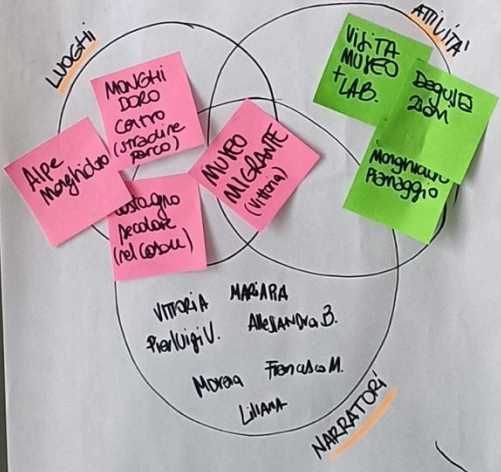 LUOGHI
ATTIVITA'
MONGHI
DORO
CENTRO
(stradine
parco)
Alpe
Monghidoro
MUSEO
MIGRANTE
(Vittoria)
castagno
secolare
VISITA
MUSEO
+ LAB.
Degusta
zioni
VITTORIA MARIARA
Pierluigi V. Alessandra B.
Morena Francesco M.
LILIANA
NARRATORI